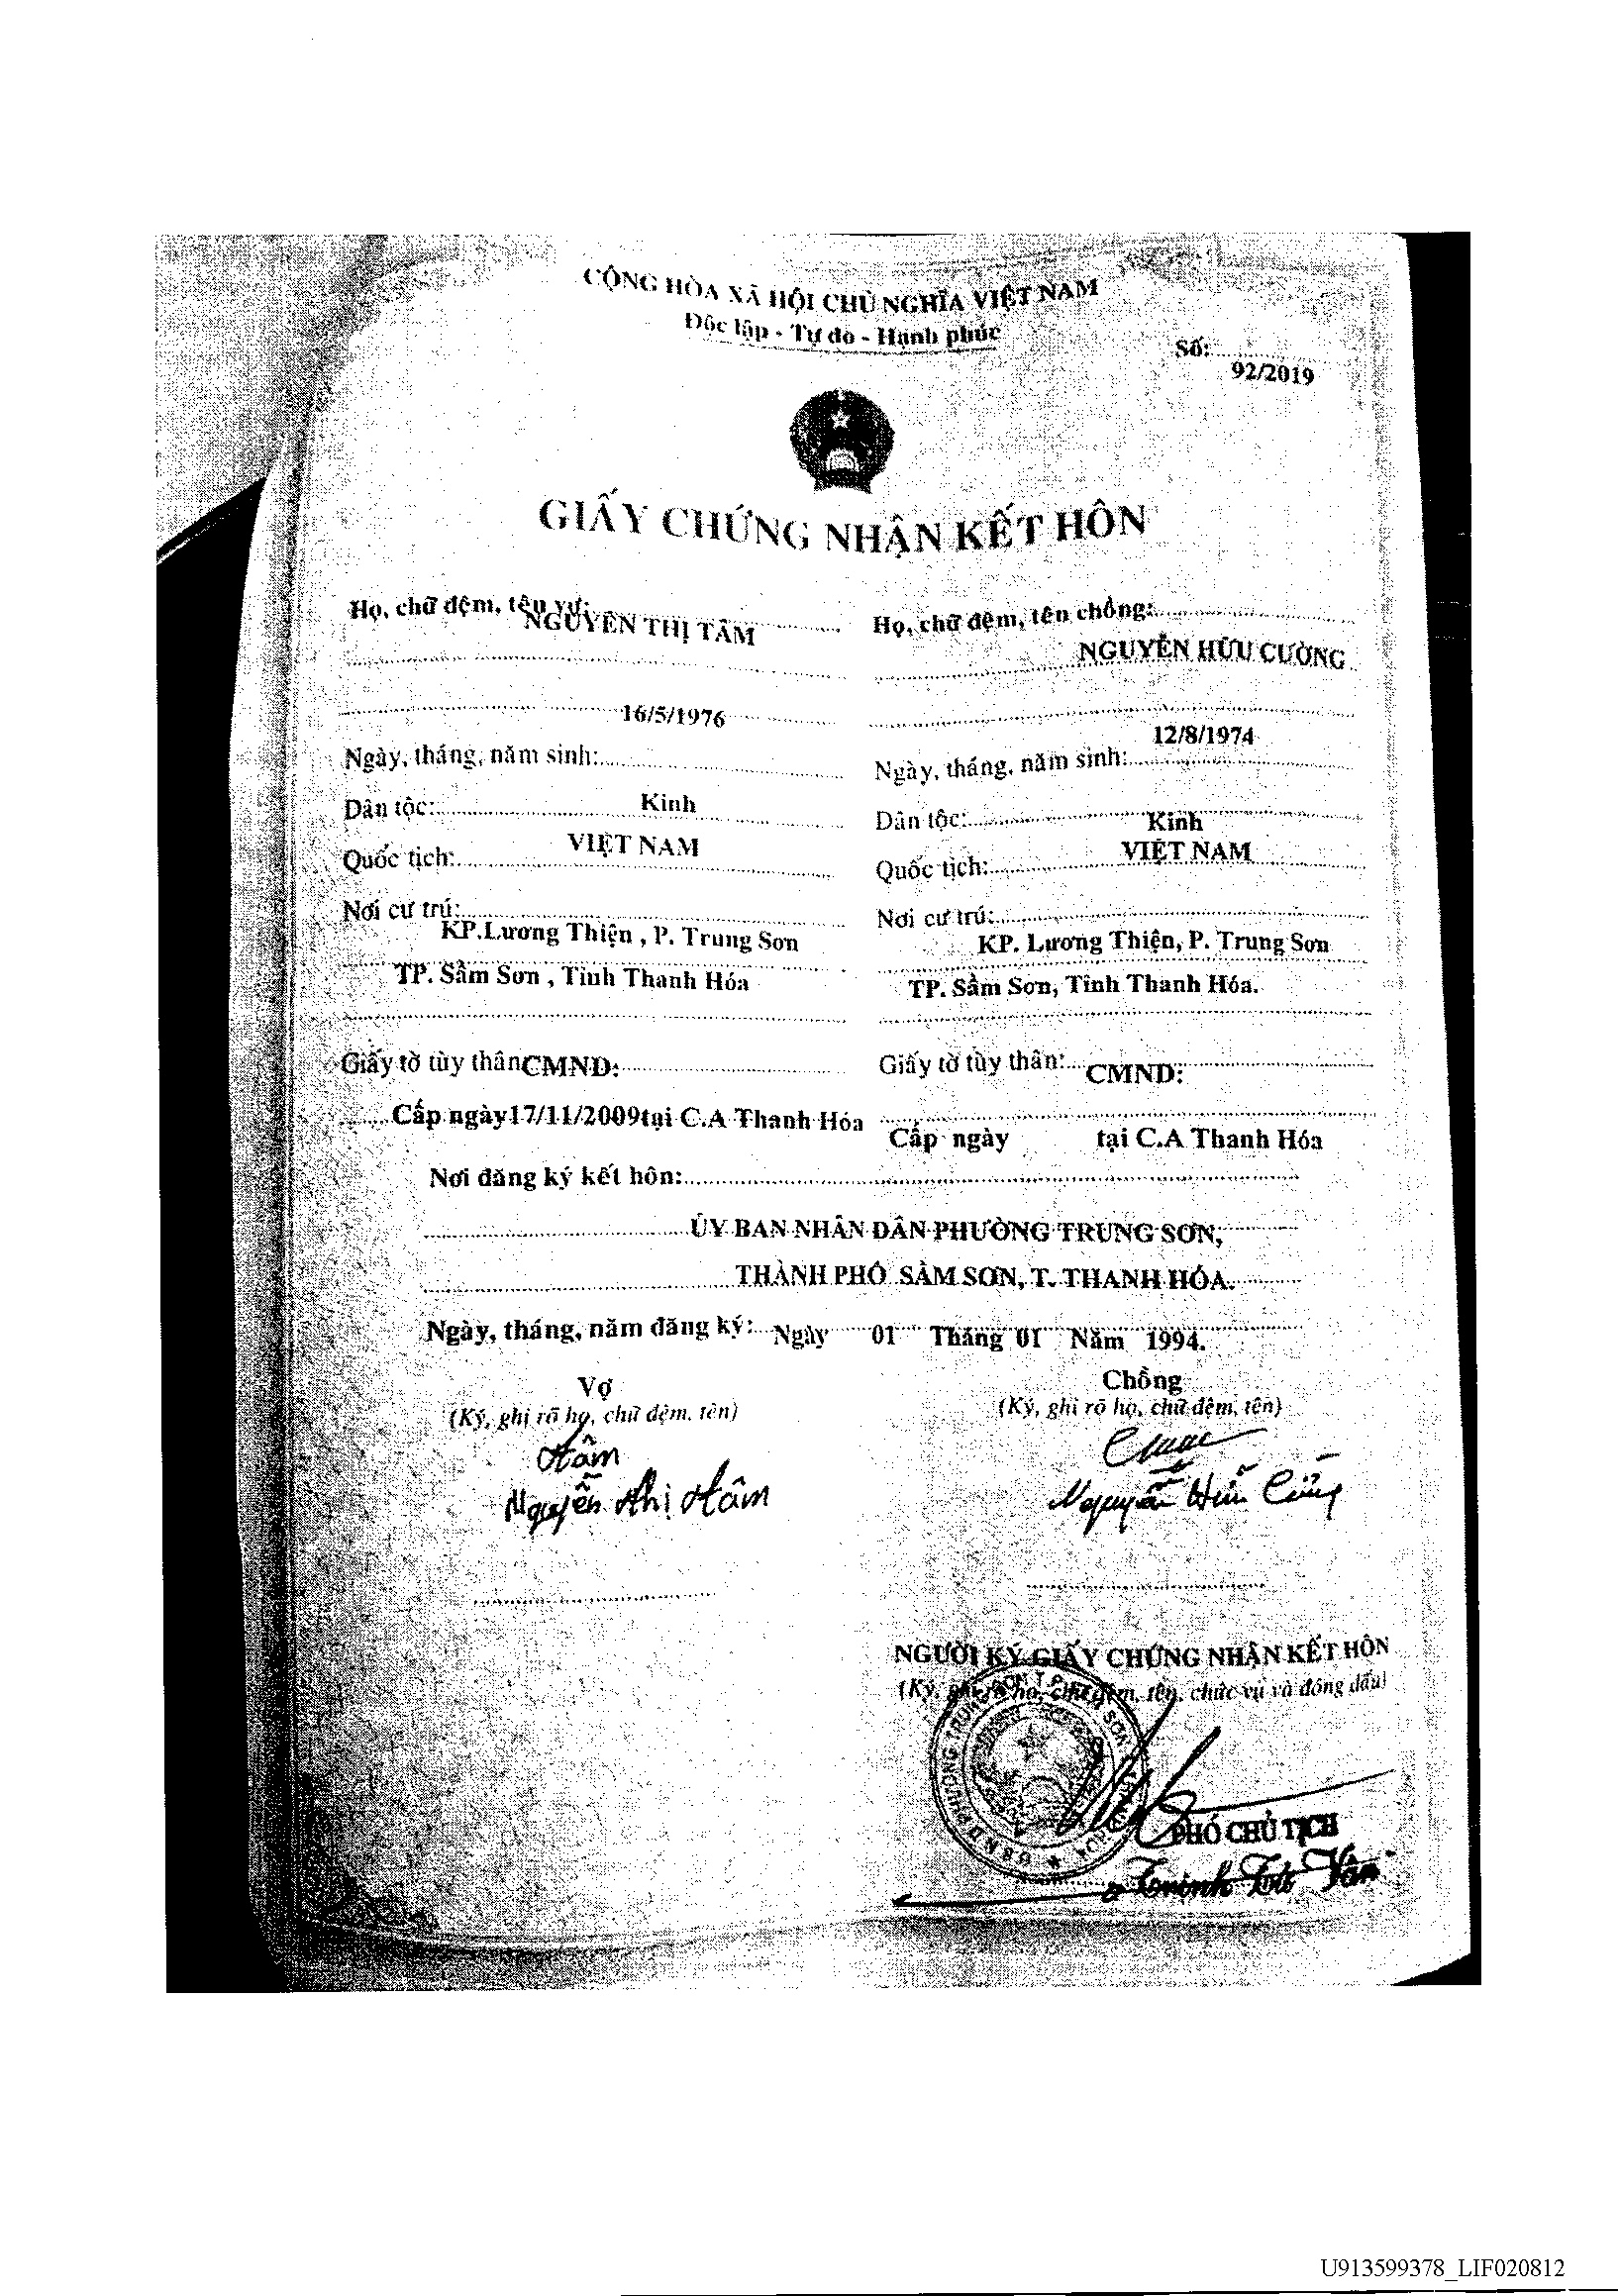 CỘNG HÒA XÃ HỘI CHỦ NGHĨA VIỆT NAM
Độc lập - Tự do - Hạnh phúc
Số:
92/2019
GIẤY CHỨNG NHẬN KẾT HÔN
Họ, chữ đệm, tên vợ:
NGUYỄN THỊ TÂM
16/5/1976
Ngày, tháng, năm sinh:
Dân tộc: Kinh
Quốc tịch: VIỆT NAM
Nơi cư trú:
KP.Lương Thiện , P. Trung Sơn
TP. Sầm Sơn , Tỉnh Thanh Hóa
Giấy tờ tùy thân CMND:
Cấp ngày17/11/2009tại C.A Thanh Hóa
Họ, chữ đệm, tên chồng:
NGUYỄN HỮU CƯỜNG
12/8/1974
Ngày, tháng, năm sinh:
Dân tộc: Kinh
Quốc tịch: VIỆT NAM
Nơi cư trú:
KP. Lương Thiện, P. Trung Sơn
TP. Sầm Sơn, Tỉnh Thanh Hóa.
Giấy tờ tùy thân: CMND:
Cấp ngày tại C.A Thanh Hóa
Nơi đăng ký kết hôn:
ỦY BAN NHÂN DÂN PHƯỜNG TRUNG SƠN,
THÀNH PHỐ SẦM SƠN, T. THANH HÓA.
Ngày, tháng, năm đăng ký: Ngày 01 Tháng 01 Năm 1994.
Vợ
(Ký, ghi rõ họ, chữ đệm, tên)
Tâm
Nguyễn Thị Tâm
Chồng
(Ký, ghi rõ họ, chữ đệm, tên)
Nguyễn Hữu
NGƯỜI KÝ GIẤY CHỨNG NHẬN KẾT HÔN
(Ký, ghi rõ họ, chữ đệm, tên, chức vụ và đóng dấu)
PHÓ CHỦ TỊCH
U913599378_LIF020812